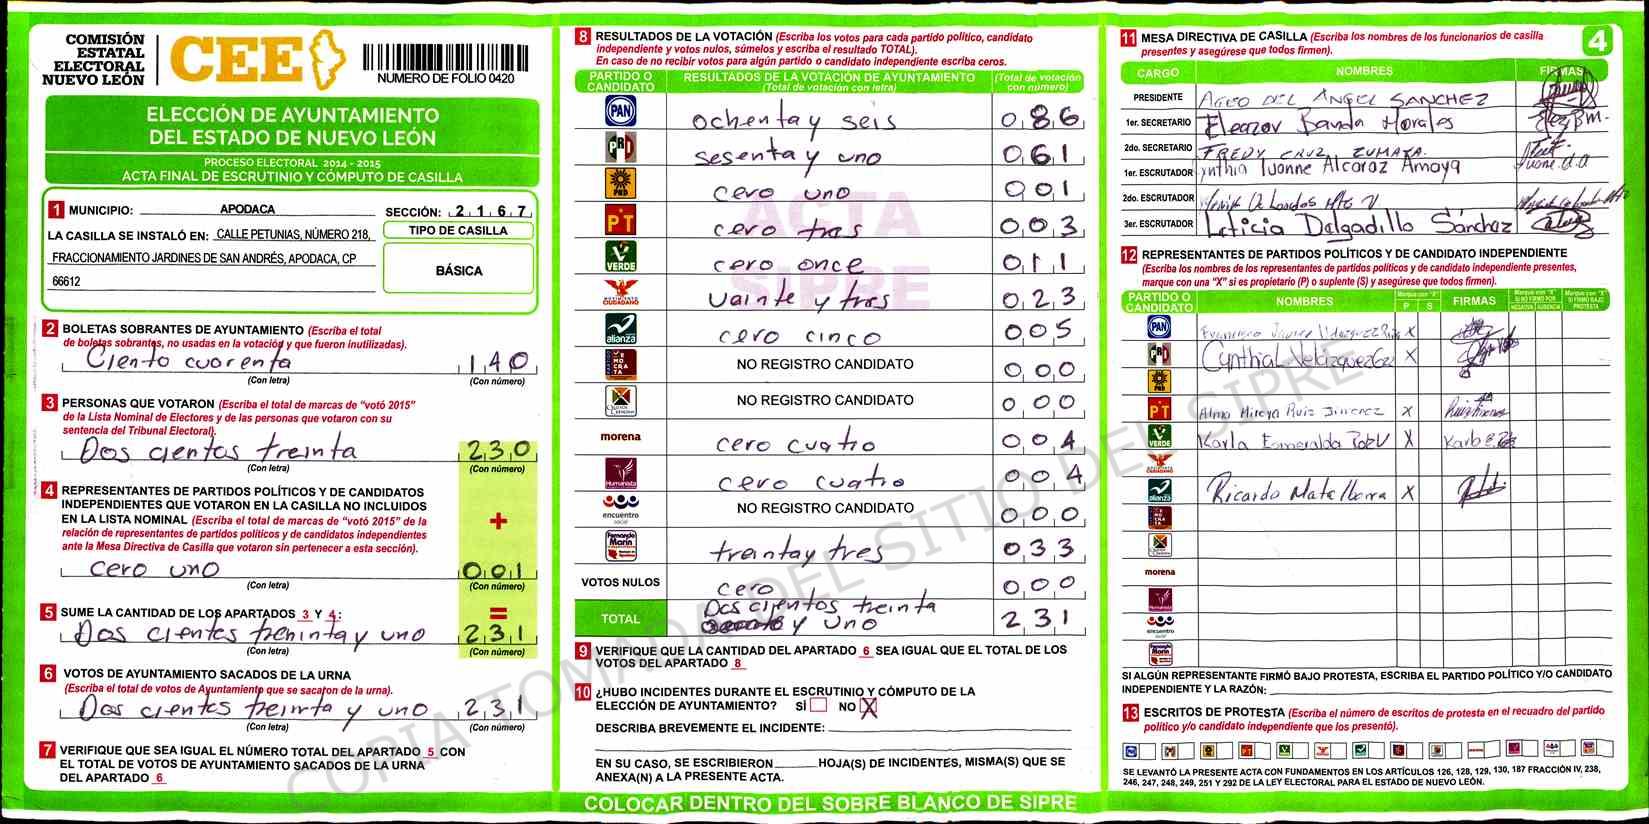 COMISIÓN
ESTATAL
ELECTORAL
NUEVO LEÓN
CEE
NUMERO DE FOLIO 0420
ELECCIÓN DE AYUNTAMIENTO
DEL ESTADO DE NUEVO LEÓN
PROCESO ELECTORAL 2014 - 2015
ACTA FINAL DE ESCRUTINIO Y CÓMPUTO DE CASILLA
1 MUNICIPIO: APODACA SECCIÓN: 2 1 6 7
LA CASILLA SE INSTALÓ EN: CALLE PETUNIAS, NÚMERO 218,
FRACCIONAMIENTO JARDINES DE SAN ANDRÉS, APODACA, CP
66612
TIPO DE CASILLA
BÁSICA
2 BOLETAS SOBRANTES DE AYUNTAMIENTO (Escriba el total
de boletas sobrantes, no usadas en la votación y que fueron inutilizadas).
Ciento cuarenta 1 4 0
(Con letra) (Con número)
3 PERSONAS QUE VOTARON (Escriba el total de marcas de "votó 2015"
de la Lista Nominal de Electores y de las personas que votaron con su
sentencia del Tribunal Electoral).
Dos cientos treinta 2 3 0
(Con letra) (Con número)
4 REPRESENTANTES DE PARTIDOS POLÍTICOS Y DE CANDIDATOS
INDEPENDIENTES QUE VOTARON EN LA CASILLA NO INCLUIDOS
EN LA LISTA NOMINAL (Escriba el total de marcas de "votó 2015" de la
relación de representantes de partidos políticos y de candidatos independientes
ante la Mesa Directiva de Casilla que votaron sin pertenecer a esta sección).
+
cero uno 0 0 1
(Con letra) (Con número)
5 SUME LA CANTIDAD DE LOS APARTADOS 3 Y 4: =
Dos cientos treninta y uno 2 3 1
(Con letra) (Con número)
6 VOTOS DE AYUNTAMIENTO SACADOS DE LA URNA
(Escriba el total de votos de Ayuntamiento que se sacaron de la urna).
Dos cientos treinta y uno 2 3 1
(Con letra) (Con número)
7 VERIFIQUE QUE SEA IGUAL EL NÚMERO TOTAL DEL APARTADO 5 CON
EL TOTAL DE VOTOS DE AYUNTAMIENTO SACADOS DE LA URNA
DEL APARTADO 6
8 RESULTADOS DE LA VOTACIÓN (Escriba los votos para cada partido político, candidato
independiente y votos nulos, súmelos y escriba el resultado TOTAL).
En caso de no recibir votos para algún partido o candidato independiente escriba ceros.
PARTIDO O CANDIDATO RESULTADOS DE LA VOTACIÓN DE AYUNTAMIENTO (Total de votación con letra) (Total de votación con número)
PAN ochenta y seis 0 8 6
PRD sesenta y uno 0 6 1
PRD cero uno 0 0 1
PT cero tres 0 0 3
VERDE cero once 0 1 1
MOVIMIENTO CIUDADANO vainte y tres 0 2 3
alianza cero cinco 0 0 5
DEMOCRATA NO REGISTRO CANDIDATO 0 0 0
NO REGISTRO CANDIDATO 0 0 0
morena cero cuatro 0 0 4
Humanista cero cuatro 0 0 4
encuentro social NO REGISTRO CANDIDATO 0 0 0
Fernando Marín treinta y tres 0 3 3
VOTOS NULOS cero 0 0 0
TOTAL Dos cientos treinta y uno 2 3 1
ACTA
SIPRE
9 VERIFIQUE QUE LA CANTIDAD DEL APARTADO 6 SEA IGUAL QUE EL TOTAL DE LOS
VOTOS DEL APARTADO 8
10 ¿HUBO INCIDENTES DURANTE EL ESCRUTINIO Y CÓMPUTO DE LA
ELECCIÓN DE AYUNTAMIENTO? SÍ NO X
DESCRIBA BREVEMENTE EL INCIDENTE:
EN SU CASO, SE ESCRIBIERON HOJA(S) DE INCIDENTES, MISMA(S) QUE SE
ANEXA(N) A LA PRESENTE ACTA.
COLOCAR DENTRO DEL SOBRE BLANCO DE SIPRE
COPIA TOMADA DEL SITIO DEL SIPRE
11 MESA DIRECTIVA DE CASILLA (Escriba los nombres de los funcionarios de casilla
presentes y asegúrese que todos firmen).
4
CARGO NOMBRES FIRMAS
PRESIDENTE AGEO DEL ANGEL SANCHEZ
1er. SECRETARIO Eleazor Banda Morales
2do. SECRETARIO FREDY CRUZ ZUMAYA
1er. ESCRUTADOR Cynthia Ivonne Alcaraz Amaya
2do. ESCRUTADOR
3er. ESCRUTADOR Leticia Delgadillo Sánchez
12 REPRESENTANTES DE PARTIDOS POLÍTICOS Y DE CANDIDATO INDEPENDIENTE
(Escriba los nombres de los representantes de partidos políticos y de candidato independiente presentes,
marque con una "X" si es propietario (P) o suplente (S) y asegúrese que todos firmen).
PARTIDO O CANDIDATO NOMBRES Marque con "X" P S FIRMAS Marque con "X" SI NO FIRMÓ POR NEGATIVA AUSENCIA Marque con "X" SI FIRMÓ BAJO PROTESTA
PAN Francisco Javier X
PRD Cynthia Velazquez X
PRD
PT Alma Mireya Ruiz Jimenez X
VERDE Karla Esmeralda X
alianza Ricardo X
morena
Humanista
encuentro social
Fernando Marín
SI ALGÚN REPRESENTANTE FIRMÓ BAJO PROTESTA, ESCRIBA EL PARTIDO POLÍTICO Y/O CANDIDATO
INDEPENDIENTE Y LA RAZÓN:
13 ESCRITOS DE PROTESTA (Escriba el número de escritos de protesta en el recuadro del partido
político y/o candidato independiente que los presentó).
SE LEVANTÓ LA PRESENTE ACTA CON FUNDAMENTOS EN LOS ARTÍCULOS 126, 128, 129, 130, 187 FRACCIÓN IV, 238,
246, 247, 248, 249, 251 Y 292 DE LA LEY ELECTORAL PARA EL ESTADO DE NUEVO LEÓN.